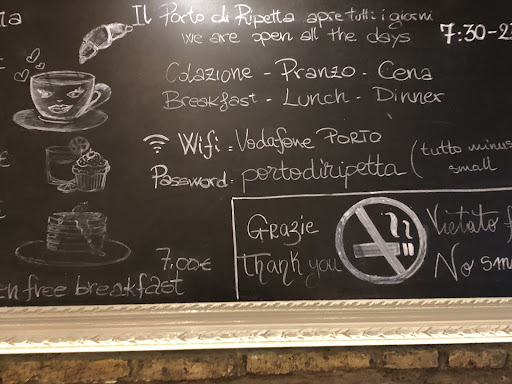 Il Porto di Ripetta apre tutti i giorni
we are open all the days
7:30-2
Colazione - Pranzo - Cena
Breakfast - Lunch - Dinner
Wifi: Vodafone PORTO
Password: portodiripetta (tutto minus
small
Grazie
Thank you
Vietato f
No sm
7,00€
free breakfast